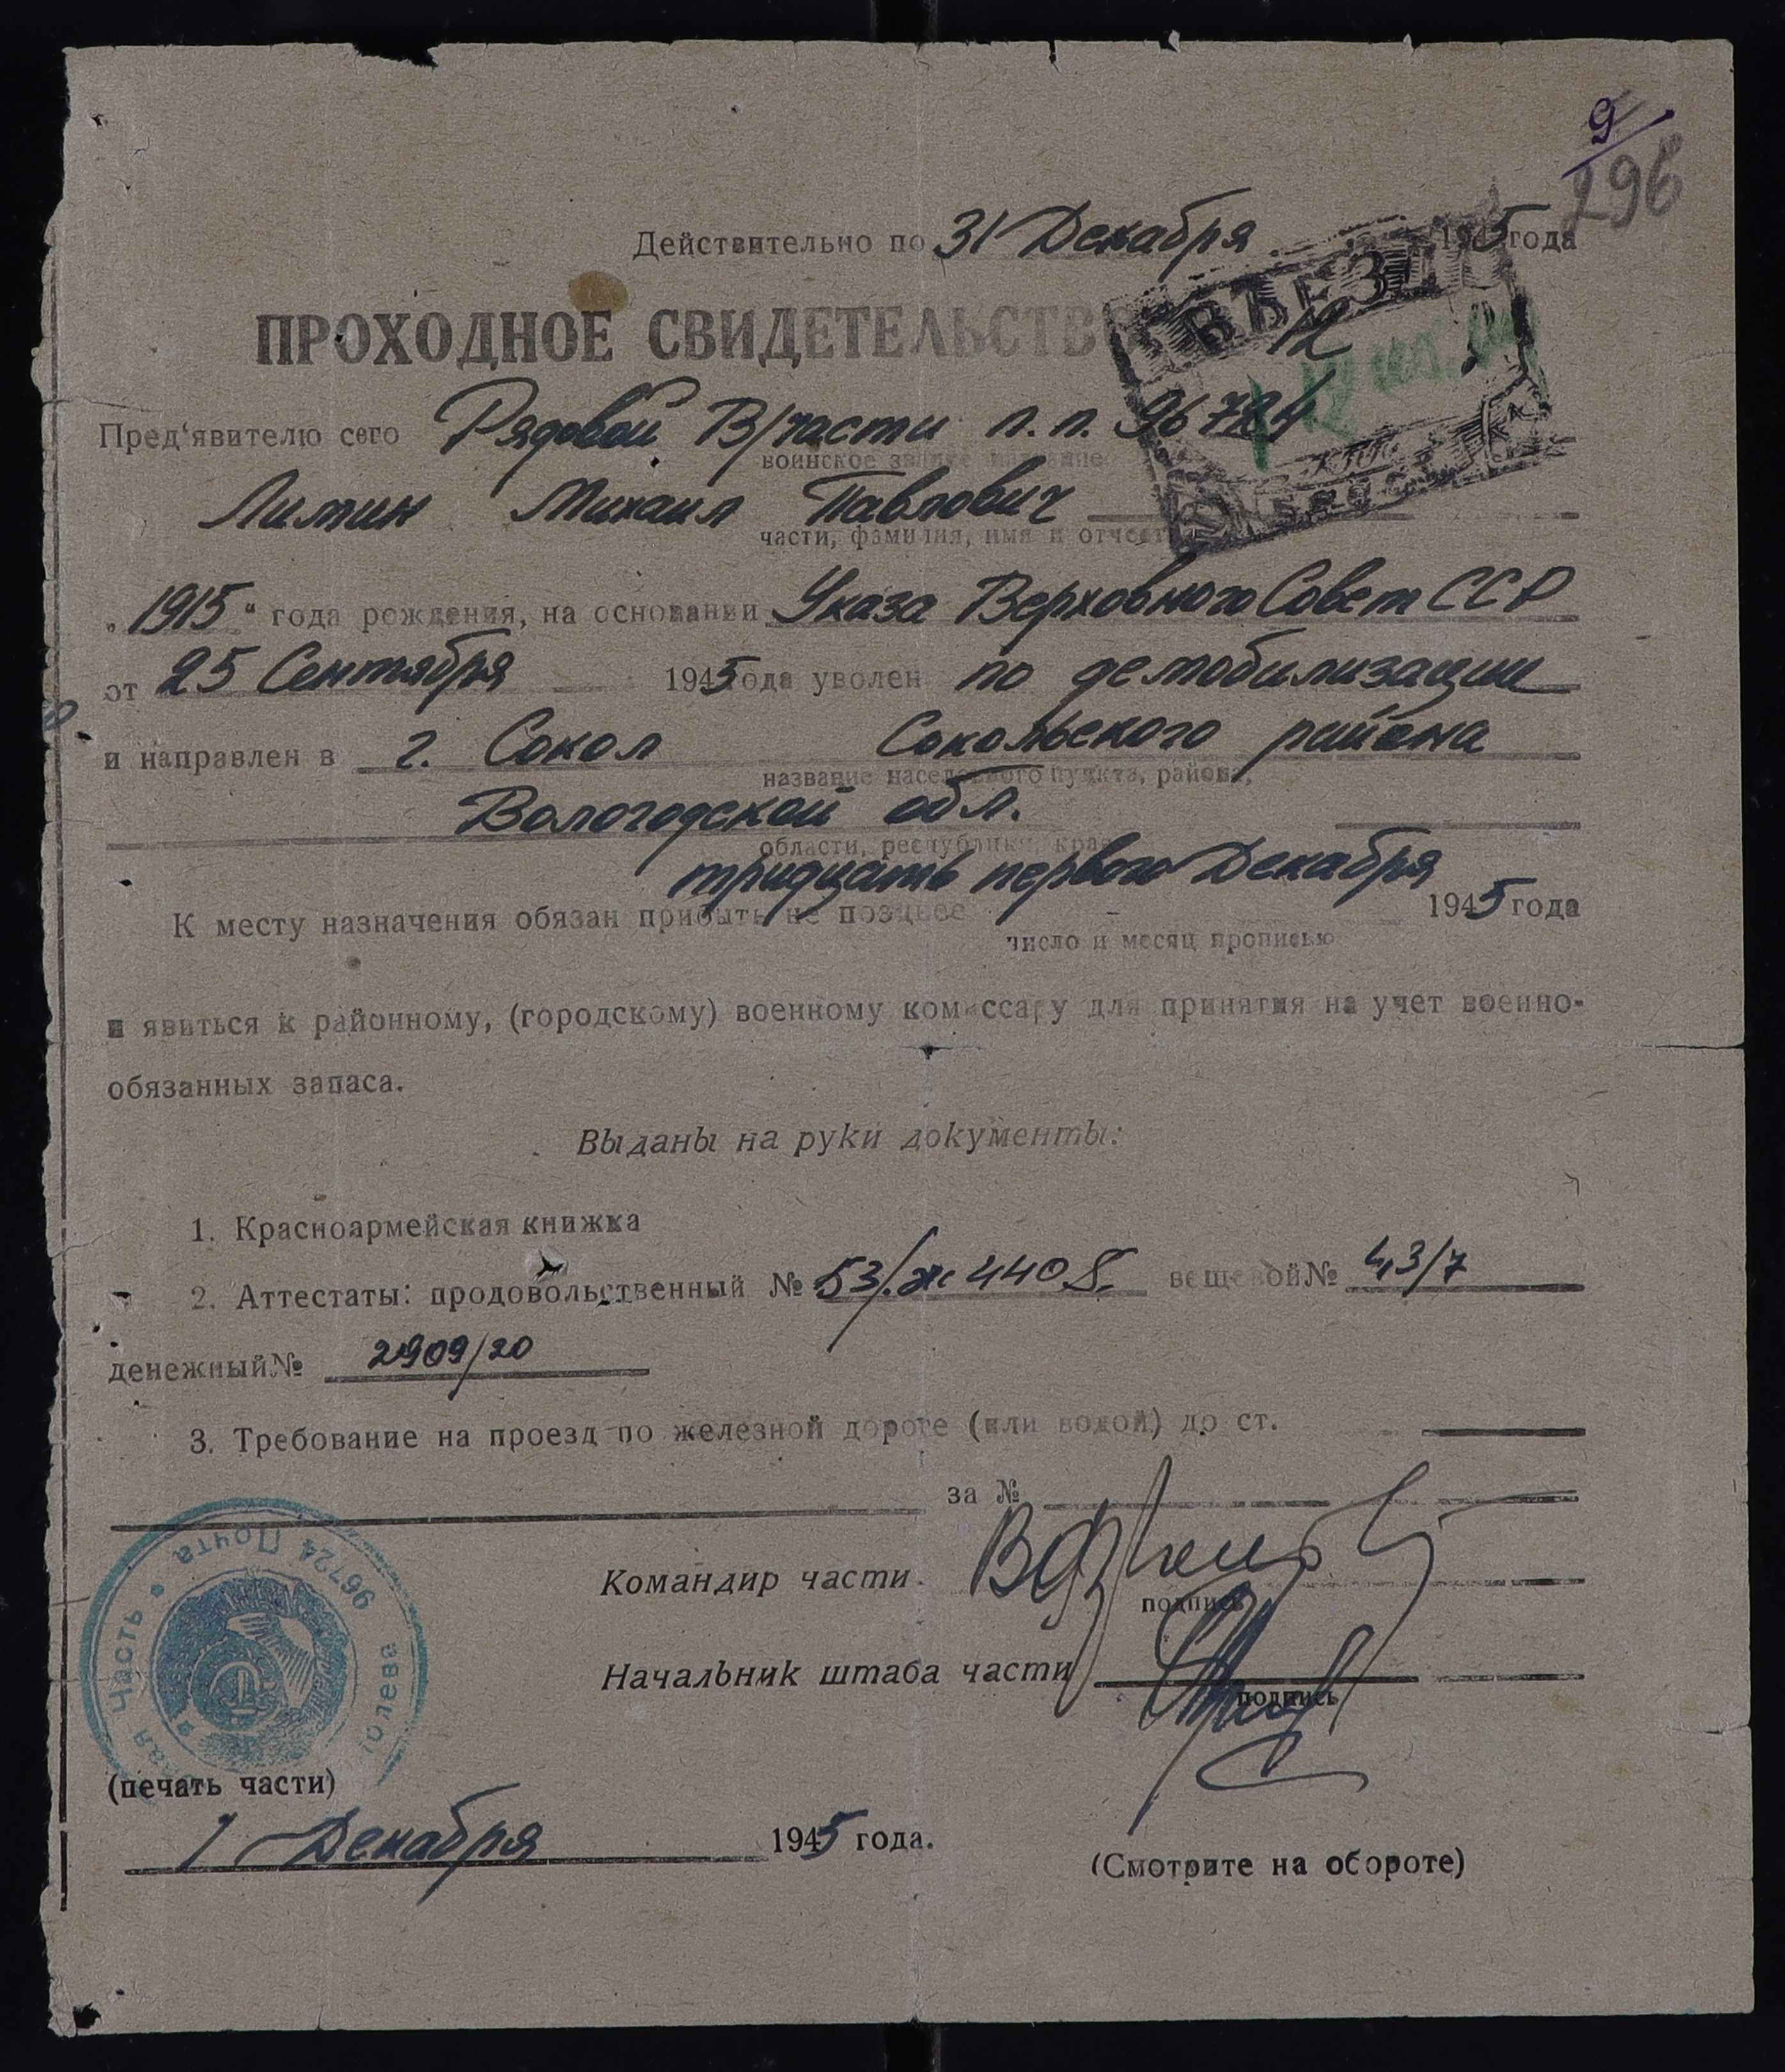 9/
296
Действительно по 31 Декабря 1945 года
ВЪЕЗД
ПРОХОДНОЕ СВИДЕТЕЛЬСТВО 12
Пред'явителю сего Рядовой В/части п.п. 96724
воинское звание название
Лимин Михаил Павлович
части, фамилия, имя и отчество
„1915“ года рождения, на основании Указа Верховного Совет ССР
от 25 Сентября 1945 года уволен по демобилизации
и направлен в г. Сокол Сокольского района
название населенного пункта, района,
Вологодской обл.
области, республики, края
К месту назначения обязан прибыть не позднее тридцать первого Декабря 1945 года
число и месяц прописью
и явиться к районному, (городскому) военному комиссару для принятия на учет военно-
обязанных запаса.
Выданы на руки документы:
1. Красноармейская книжка
2. Аттестаты: продовольственный № 53/.ж 4408. вещевой № 43/7
денежный № 2909/20
3. Требование на проезд по железной дороге (или водой) до ст.
за №
Командир части
подпись
Начальник штаба части
подпись
часть Полевая Почта 96724
(печать части)
1 Декабря 1945 года.
(Смотрите на обороте)